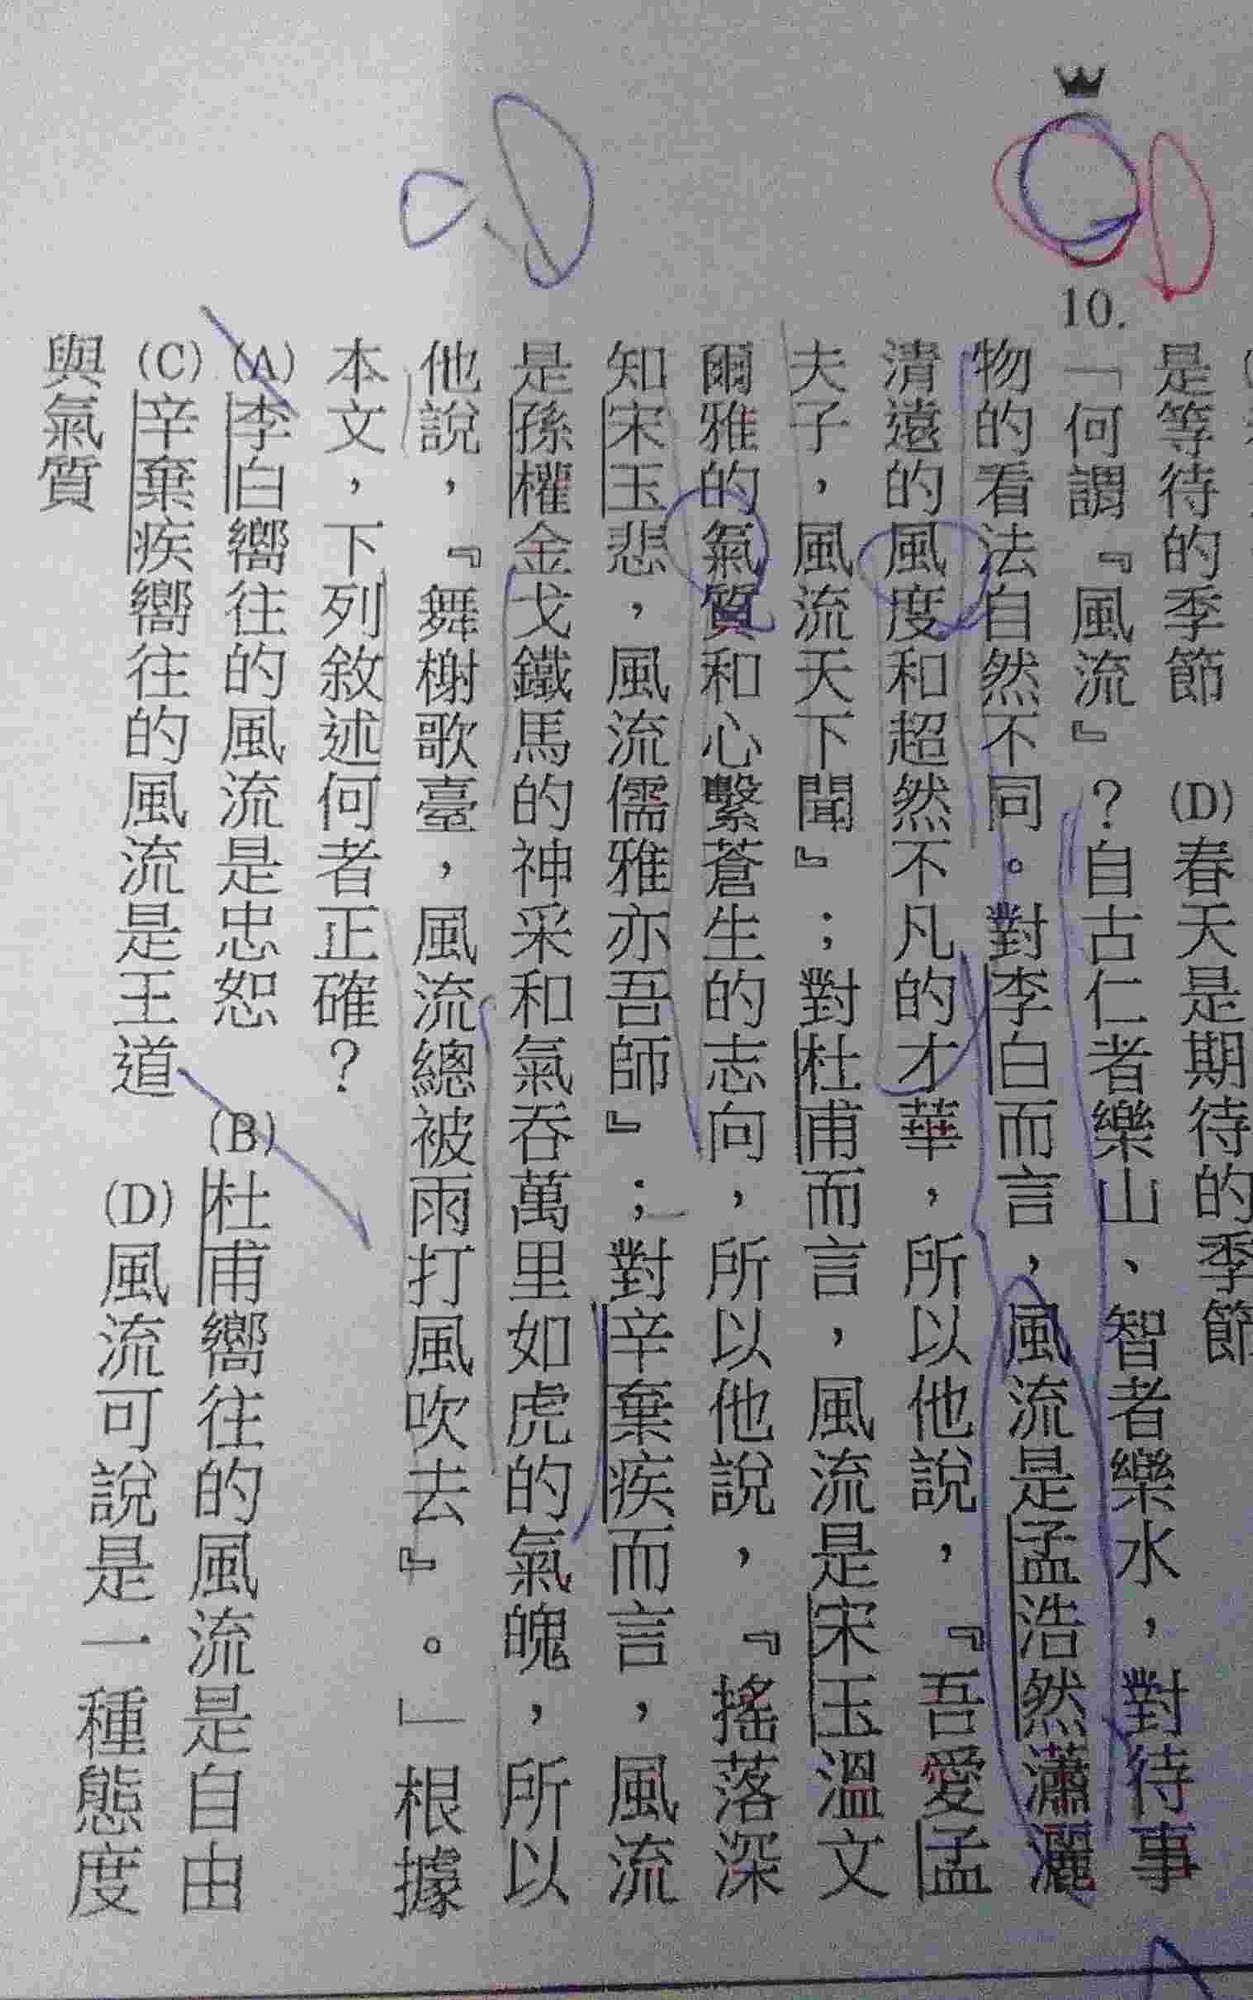 是等待的季節　(D)春天是期待的季節
10.「何謂『風流』？自古仁者樂山、智者樂水，對待事
物的看法自然不同。對李白而言，風流是孟浩然瀟灑
清遠的風度和超然不凡的才華，所以他說，『吾愛孟
夫子，風流天下聞』；對杜甫而言，風流是宋玉溫文
爾雅的氣質和心繫蒼生的志向，所以他說，『搖落深
知宋玉悲，風流儒雅亦吾師』；對辛棄疾而言，風流
是孫權金戈鐵馬的神采和氣吞萬里如虎的氣魄，所以
他說，『舞榭歌臺，風流總被雨打風吹去』。」根據
本文，下列敘述何者正確？
(A)李白嚮往的風流是忠恕　(B)杜甫嚮往的風流是自由
(C)辛棄疾嚮往的風流是王道　(D)風流可說是一種態度
與氣質